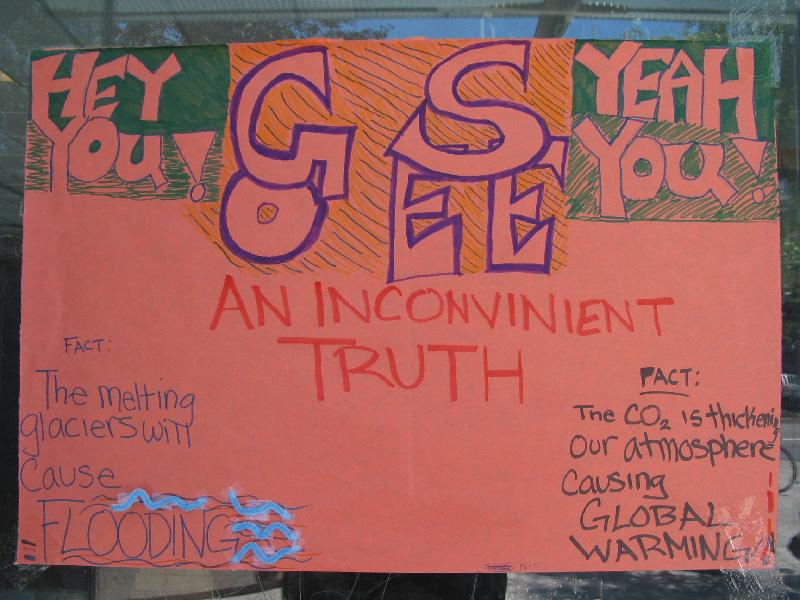 HEY
YOU!
GO
SEE
YEAH
YOU!
AN INCONVINIENT
TRUTH
FACT:
The melting
glaciers will
cause
FLOODING
FACT:
The CO₂ is thickening
our atmosphere
causing
GLOBAL
WARMING!